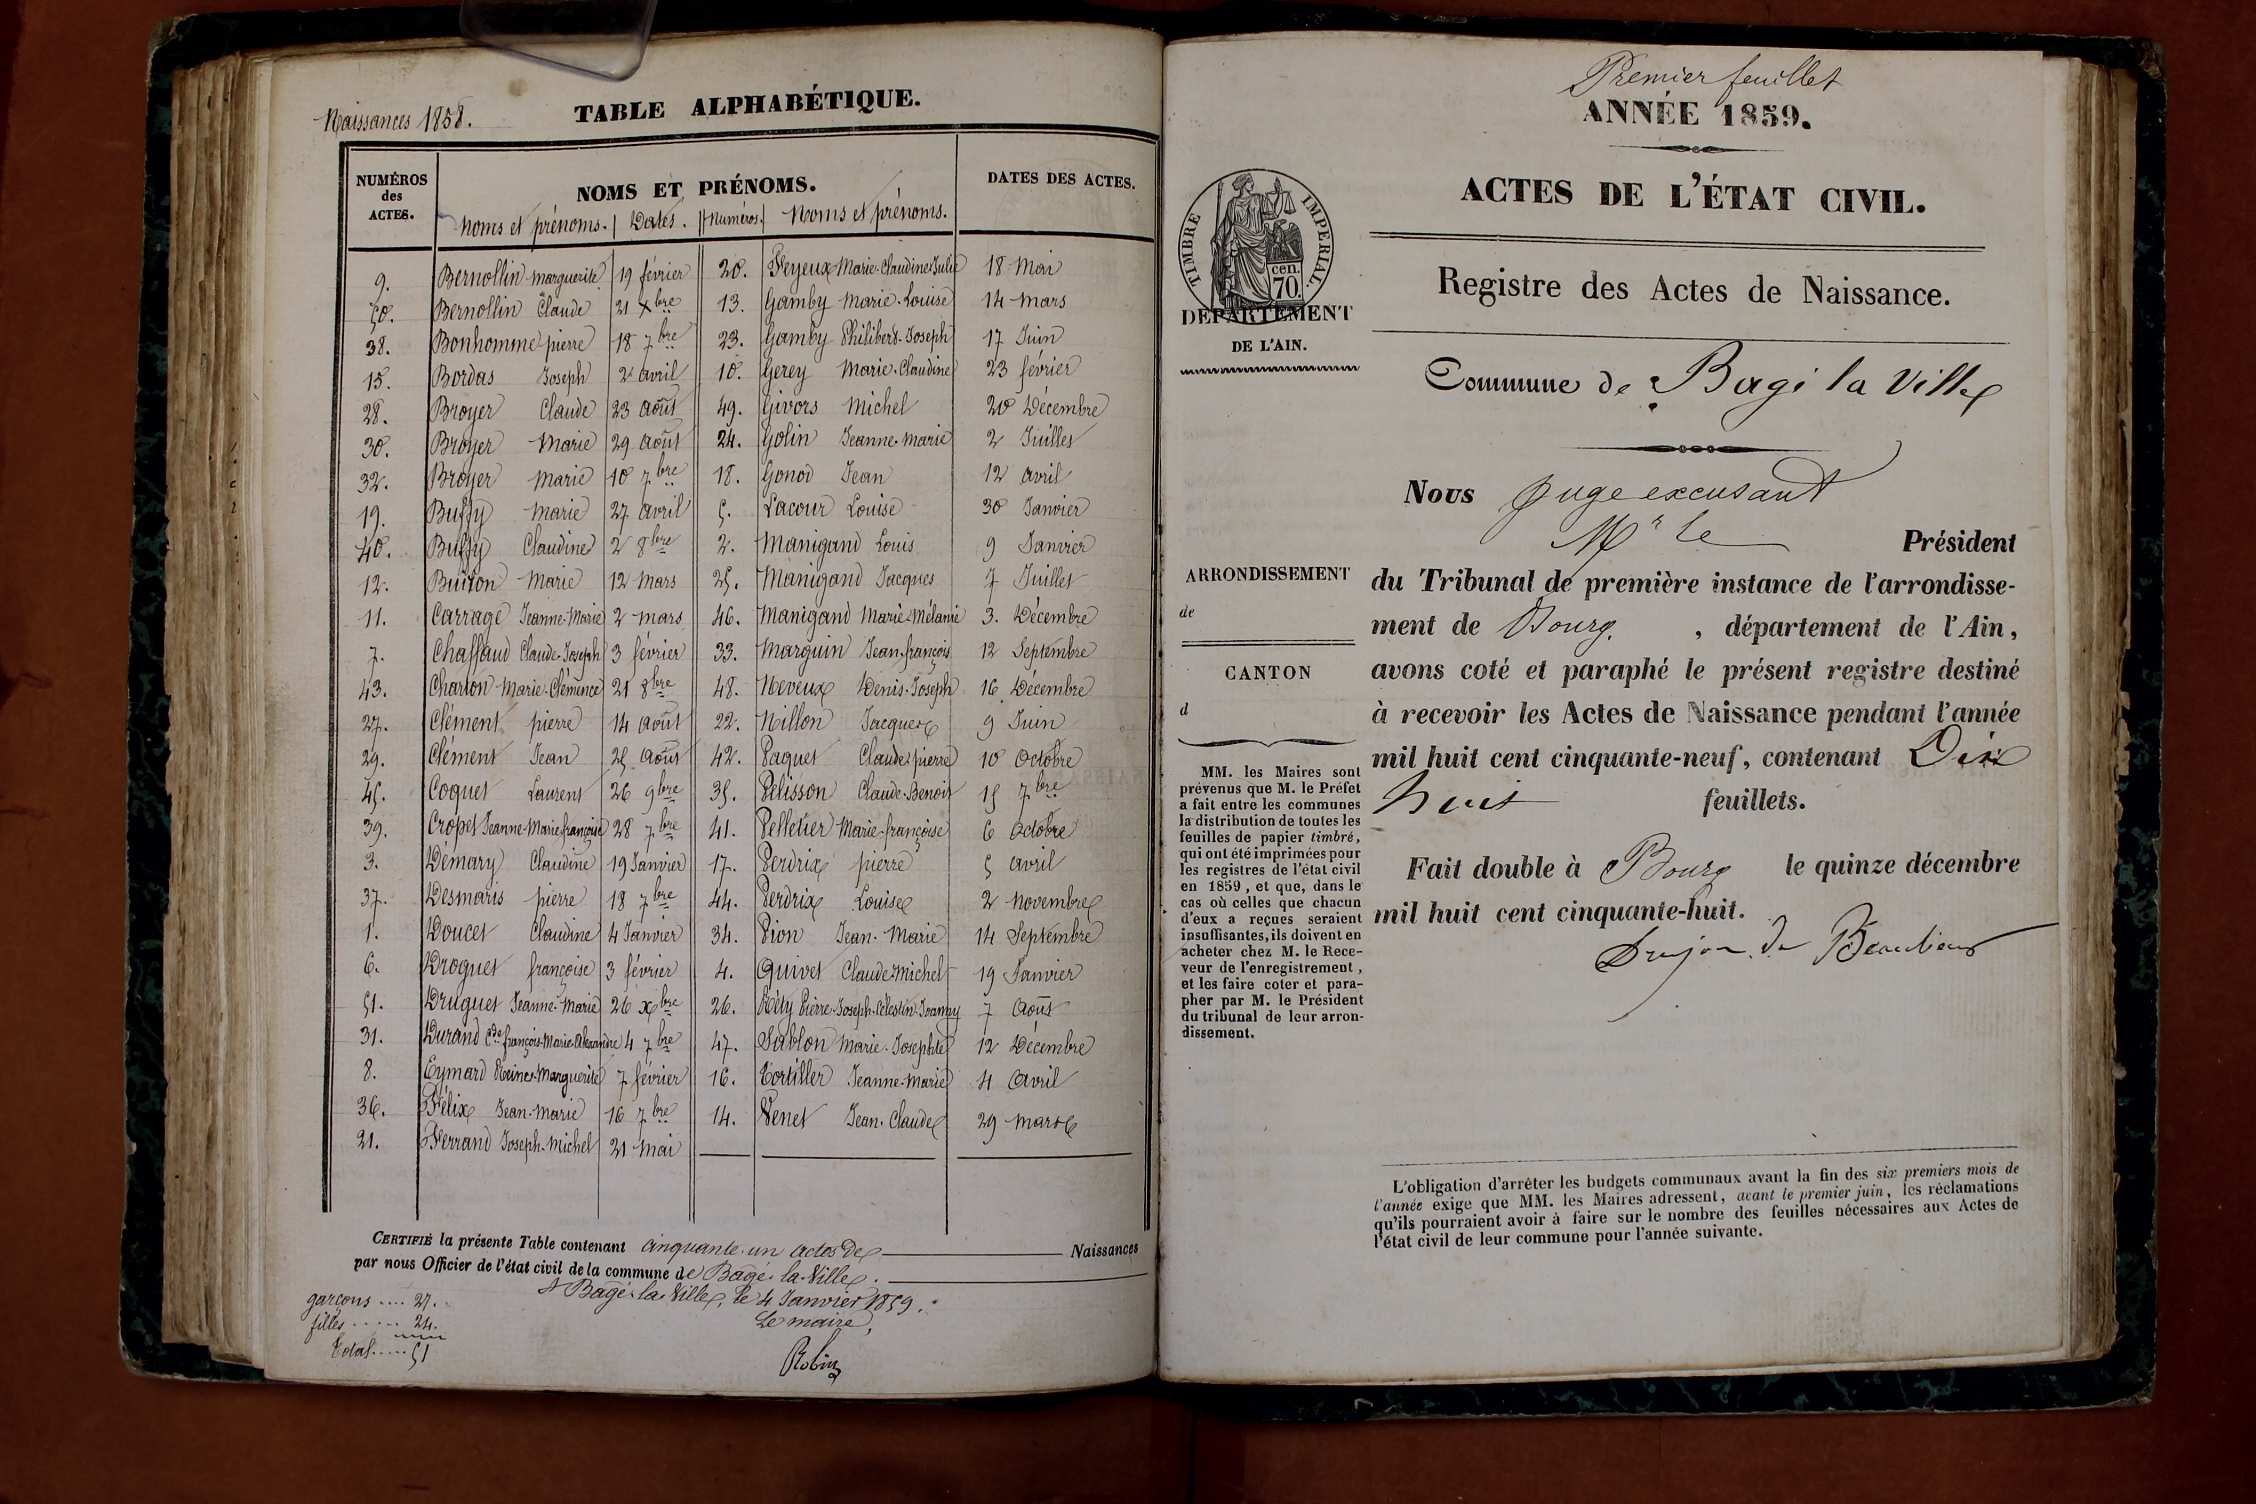 Naissances 1858.
TABLE ALPHABÉTIQUE.
NUMÉROS des ACTES.
NOMS ET PRÉNOMS.
DATES DES ACTES.
Noms et prénoms. Dates. Numéros. Noms et prénoms.
9. Bernollin Marguerite 19 février 20. Feyeux Marie-Claudine-Julie 18 Mai
50. Bernollin Claude 21 Xbre 13. Gamby Marie-Louise 14 Mars
38. Bonhomme pierre 18 7bre 23. Gamby Philibert-Joseph 17 Juin
15. Bordas Joseph 2 avril 10. Gerey Marie-Claudine 23 février
28. Broyer Claude 23 Août 49. Givors Michel 20 Décembre
30. Broyer Marie 29 Août 24. Golin Jeanne-Marie 2 Juillet
32. Broyer Marie 10 7bre 18. Gonod Jean 12 avril
19. Buffy Marie 27 avril 5. Lacour Louise 30 Janvier
40. Buffy Claudine 2 8bre 2. Manigand Louis 9 Janvier
12. Buiron Marie 12 Mars 25. Manigand Jacques 7 Juillet
11. Carrage Jeanne-Marie 2 mars 46. Manigand Marie-Mélanie 3. Décembre
7. Chaffaud Claude-Joseph 3 février 33. Marguin Jean-françois 12 Septembre
43. Charlon Marie-Clémence 21 8bre 48. Neveux Denis-Joseph 16 Décembre
27. Clément pierre 14 Août 22. Nillon Jacques 9 Juin
29. Clément Jean 25 Août 42. Paquet Claude pierre 10 Octobre
45. Coquet Laurent 26 9bre 35. Pelisson Claude-Benoit 15 7bre
39. Cropet Jeanne-Marie françoise 28 7bre 41. Pelletier Marie-françoise 6 Octobre
3. Démary Claudine 19 Janvier 17. Perdrix pierre 5 avril
37. Desmaris pierre 18 7bre 44. Perdrix Louise 2 Novembre
1. Doucet Claudine 4 Janvier 34. Pion Jean-Marie 14 Septembre
6. Droguet françoise 3 février 4. Quivet Claude Michel 19 Janvier
51. Druguet Jeanne-Marie 26 Xbre 26. Réty Pierre-Joseph-Célestin-Joanny 7 Août
31. Durand Cde françois-Marie-Alexandre 4 7bre 47. Sablon Marie-Josephte 12 Décembre
8. Eymard Reine-Marguerite 7 février 16. Tortiller Jeanne-Marie 4 Avril
36. Félix Jean-Marie 16 7bre 14. Venet Jean-Claude 29 Mars
21. Ferrand Joseph-Michel 21 Mai
CERTIFIÉ la présente Table contenant cinquante-un actes de Naissances
par nous Officier de l'état civil de la commune de Bâgé-la-Ville.
A Bâgé-la-Ville, le 4 Janvier 1859.
garçons .... 27.
filles ..... 24.
Total ..... 51
Le maire,
Robin
Premier feuillet
ANNÉE 1859.
ACTES DE L'ÉTAT CIVIL.
TIMBRE IMPÉRIAL.
cen. 70.
DÉPARTEMENT
DE L'AIN.
Registre des Actes de Naissance.
Commune de Bagé la Ville
Nous Juge excusant
Mr le Président
du Tribunal de première instance de l'arrondisse-
ment de Bourg, département de l'Ain,
avons coté et paraphé le présent registre destiné
à recevoir les Actes de Naissance pendant l'année
mil huit cent cinquante-neuf, contenant Dix
huit feuillets.
Fait double à Bourg le quinze décembre
mil huit cent cinquante-huit.
Dujon de Beaulieu
ARRONDISSEMENT
de
CANTON
d
MM. les Maires sont
prévenus que M. le Préfet
a fait entre les communes
la distribution de toutes les
feuilles de papier timbré,
qui ont été imprimées pour
les registres de l'état civil
en 1859, et que, dans le
cas où celles que chacun
d'eux a reçues seraient
insuffisantes, ils doivent en
acheter chez M. le Rece-
veur de l'enregistrement,
et les faire coter et para-
pher par M. le Président
du tribunal de leur arron-
dissement.
L'obligation d'arrêter les budgets communaux avant la fin des six premiers mois de
l'année exige que MM. les Maires adressent, avant le premier juin, les réclamations
qu'ils pourraient avoir à faire sur le nombre des feuilles nécessaires aux Actes de
l'état civil de leur commune pour l'année suivante.